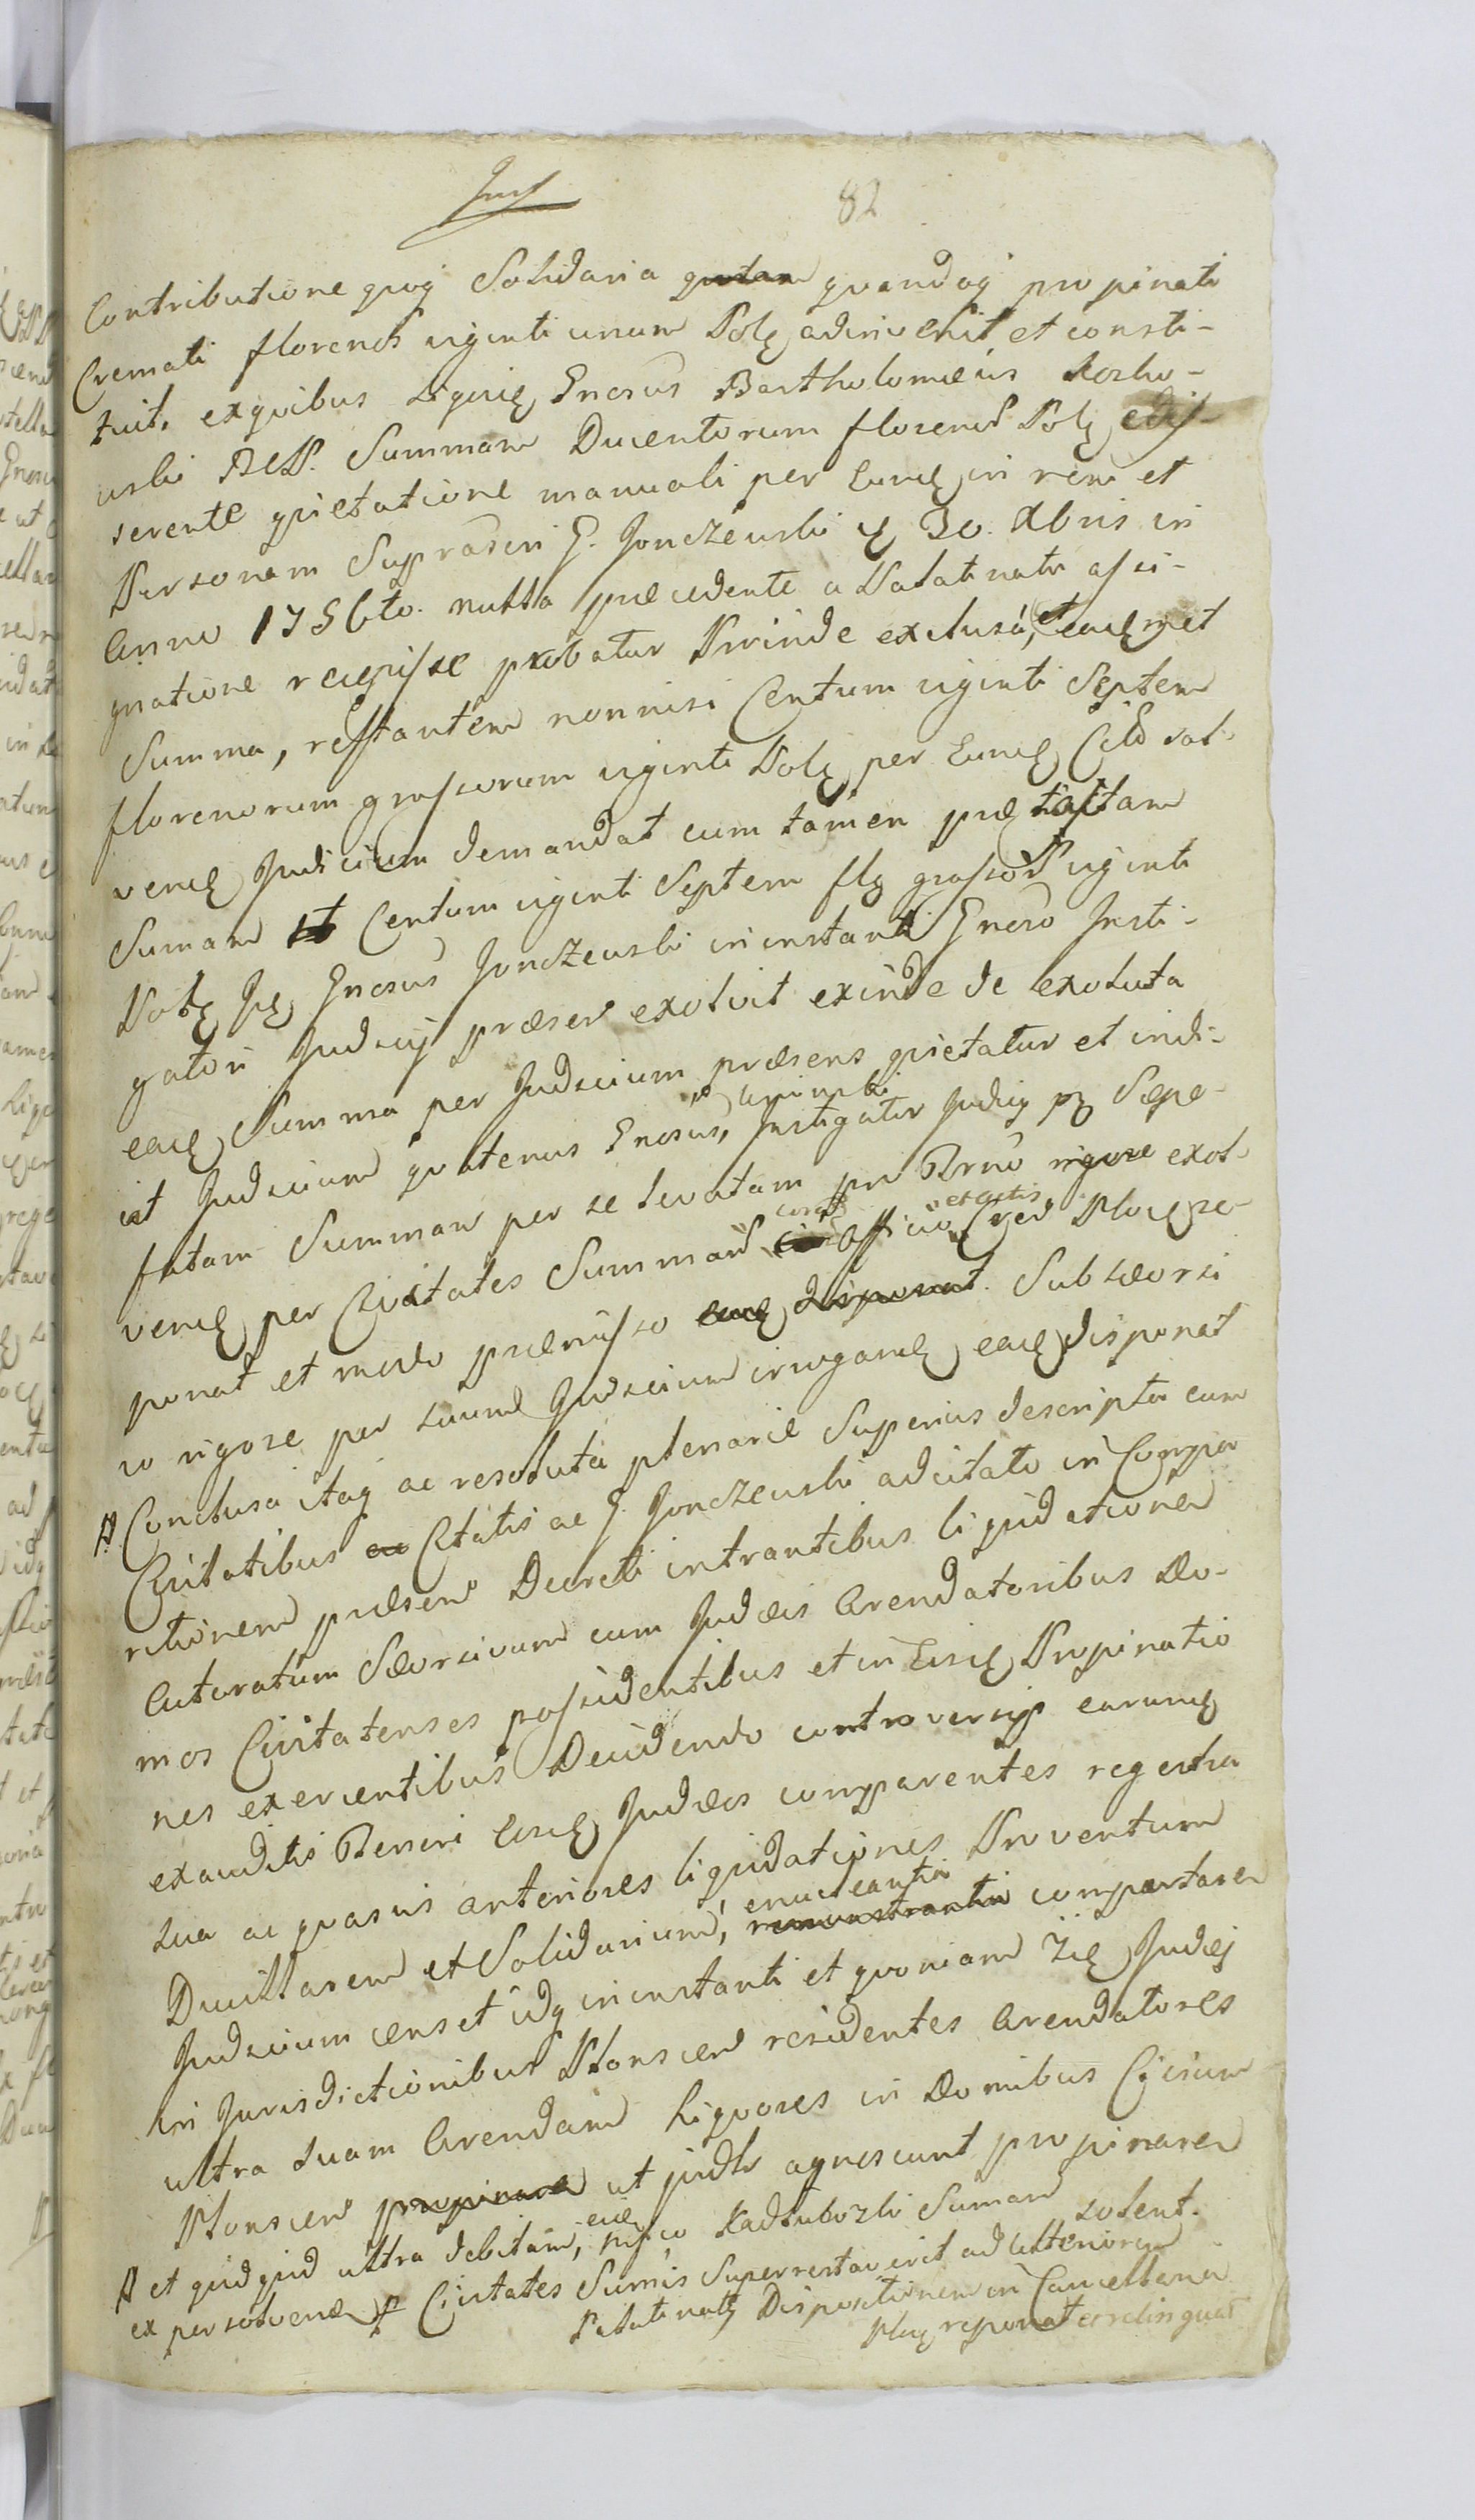 82
Contributione quoq Solidaria quandoq propinati
Cremati florenos viginti unum Pol adinvenit et consti-
tuit, exquibus Gnosus Bartholomæus
Summam Ducentorum florenos Pol edis-
serente quietatione manuali per Eund in rem et
Personam Suprascri G. Jonczewski 30. Xbris in
Anno 1756to. nulla præcedente a Palatinatu assi-
gnatione recepisse probatur Proinde exclusa, et eadmet
Summa, restantem nonnisi Centum viginti Septem
florenorum grossorum viginti Pol per Eund sol-
vend Judicium demandat cum tamen præ tactam
Sumam Centum viginti Septem fl grossor viginti
Pol Gnosus Jonczewski in instanti Gnoso Insti-
gatori Judicij præsen exolvit exinde de exoluta
eade Summa per Judicium præsens quietatur et indi-
cat Judicium quatenus Gnosus, Instigator Judicij Sæpe-
fatam Summam per se levatam pro Termino rigore exol-
vend per Civitates Summam coram Officio et actis Plocen re-
ponat et modo præmisso eand disponat. Sub seorsi
vo rigore per suum Judicium irrogand eade disponat
Conclusa itaq ac resoluta plenarie Superius descripta cum
Civitatibus ac G. Jonczewski adcitato in Compa
ritionem præsen Decreti intrantibus liquidatione
Actoratum Seorsivum cum Judæis Arendatoribus Do-
mos Civitatenses possidentibus et in Eisd Propinatio
nes exercentibus Decidendo controversijs earund
exauditis Partium Eosd Judæos comparentes regestra
sua ac quasvis anteriores liquidationes Proventum
Ducillarem et Solidarium, enucleantia comportare
Judicium censet idq in instanti et quoniam Iid Judæi
in Jurisdictionibus Plonscen residentes Arendatores
ultra suam Arendam Liquores in Domibus Civium
Plonscen propinare ut judtr agnoscunt propinare
solent.
et quidquid ultra debitam, eid Kadłubozki Sumam
ex persolvend p Civitates Sumis Superrestaverit ad ulteriorem
Palatinatus Dispositionem in Cancellaria
Ploc reponat et relinquat